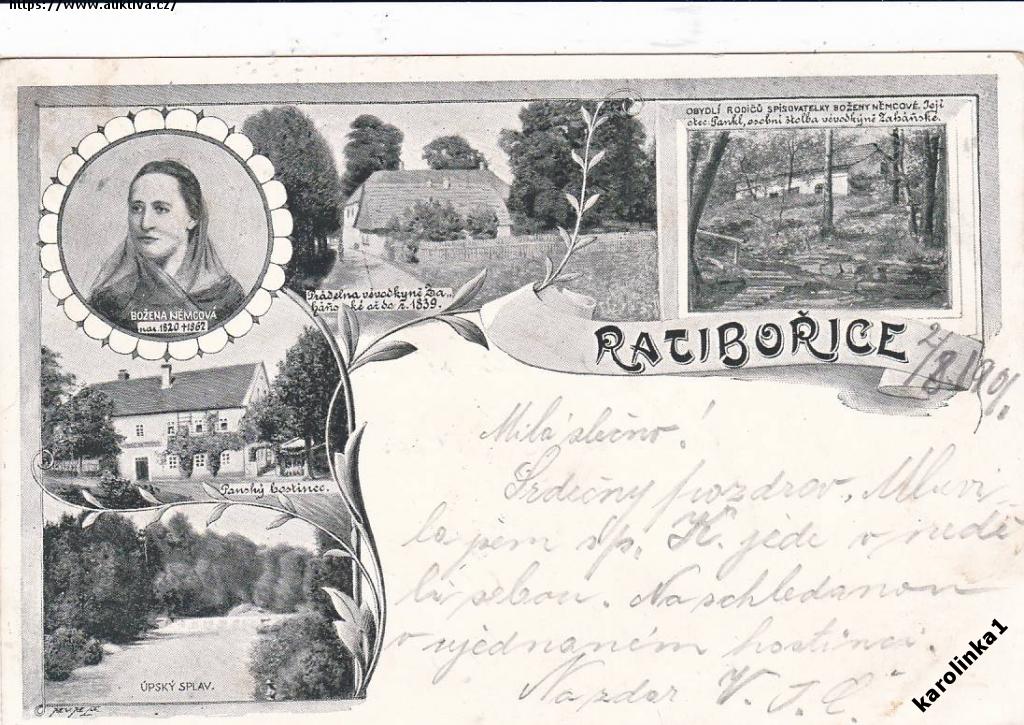 https://www.auktiva.cz/
OBYDLÍ RODIČŮ SPISOVATELKY BOŽENY NĚMCOVÉ. Její
otec Pankl, osobní štolba vévodkyně Zaháňské.
BOŽENA NĚMCOVÁ
nar. 1820 †1862
Prádelna vévodkyně Za-
háňské až do r. 1839.
RATIBOŘICE
2/8 1901.
Panský hostinec.
ÚPSKÝ SPLAV.
Milá slečno!
Srdečný pozdrav. Mluvi
la jsem sp. K. jede v nedě
li sebou. Na schledanou
v ujednaném hostinci.
Na zdar V. J. Č
karolinka1